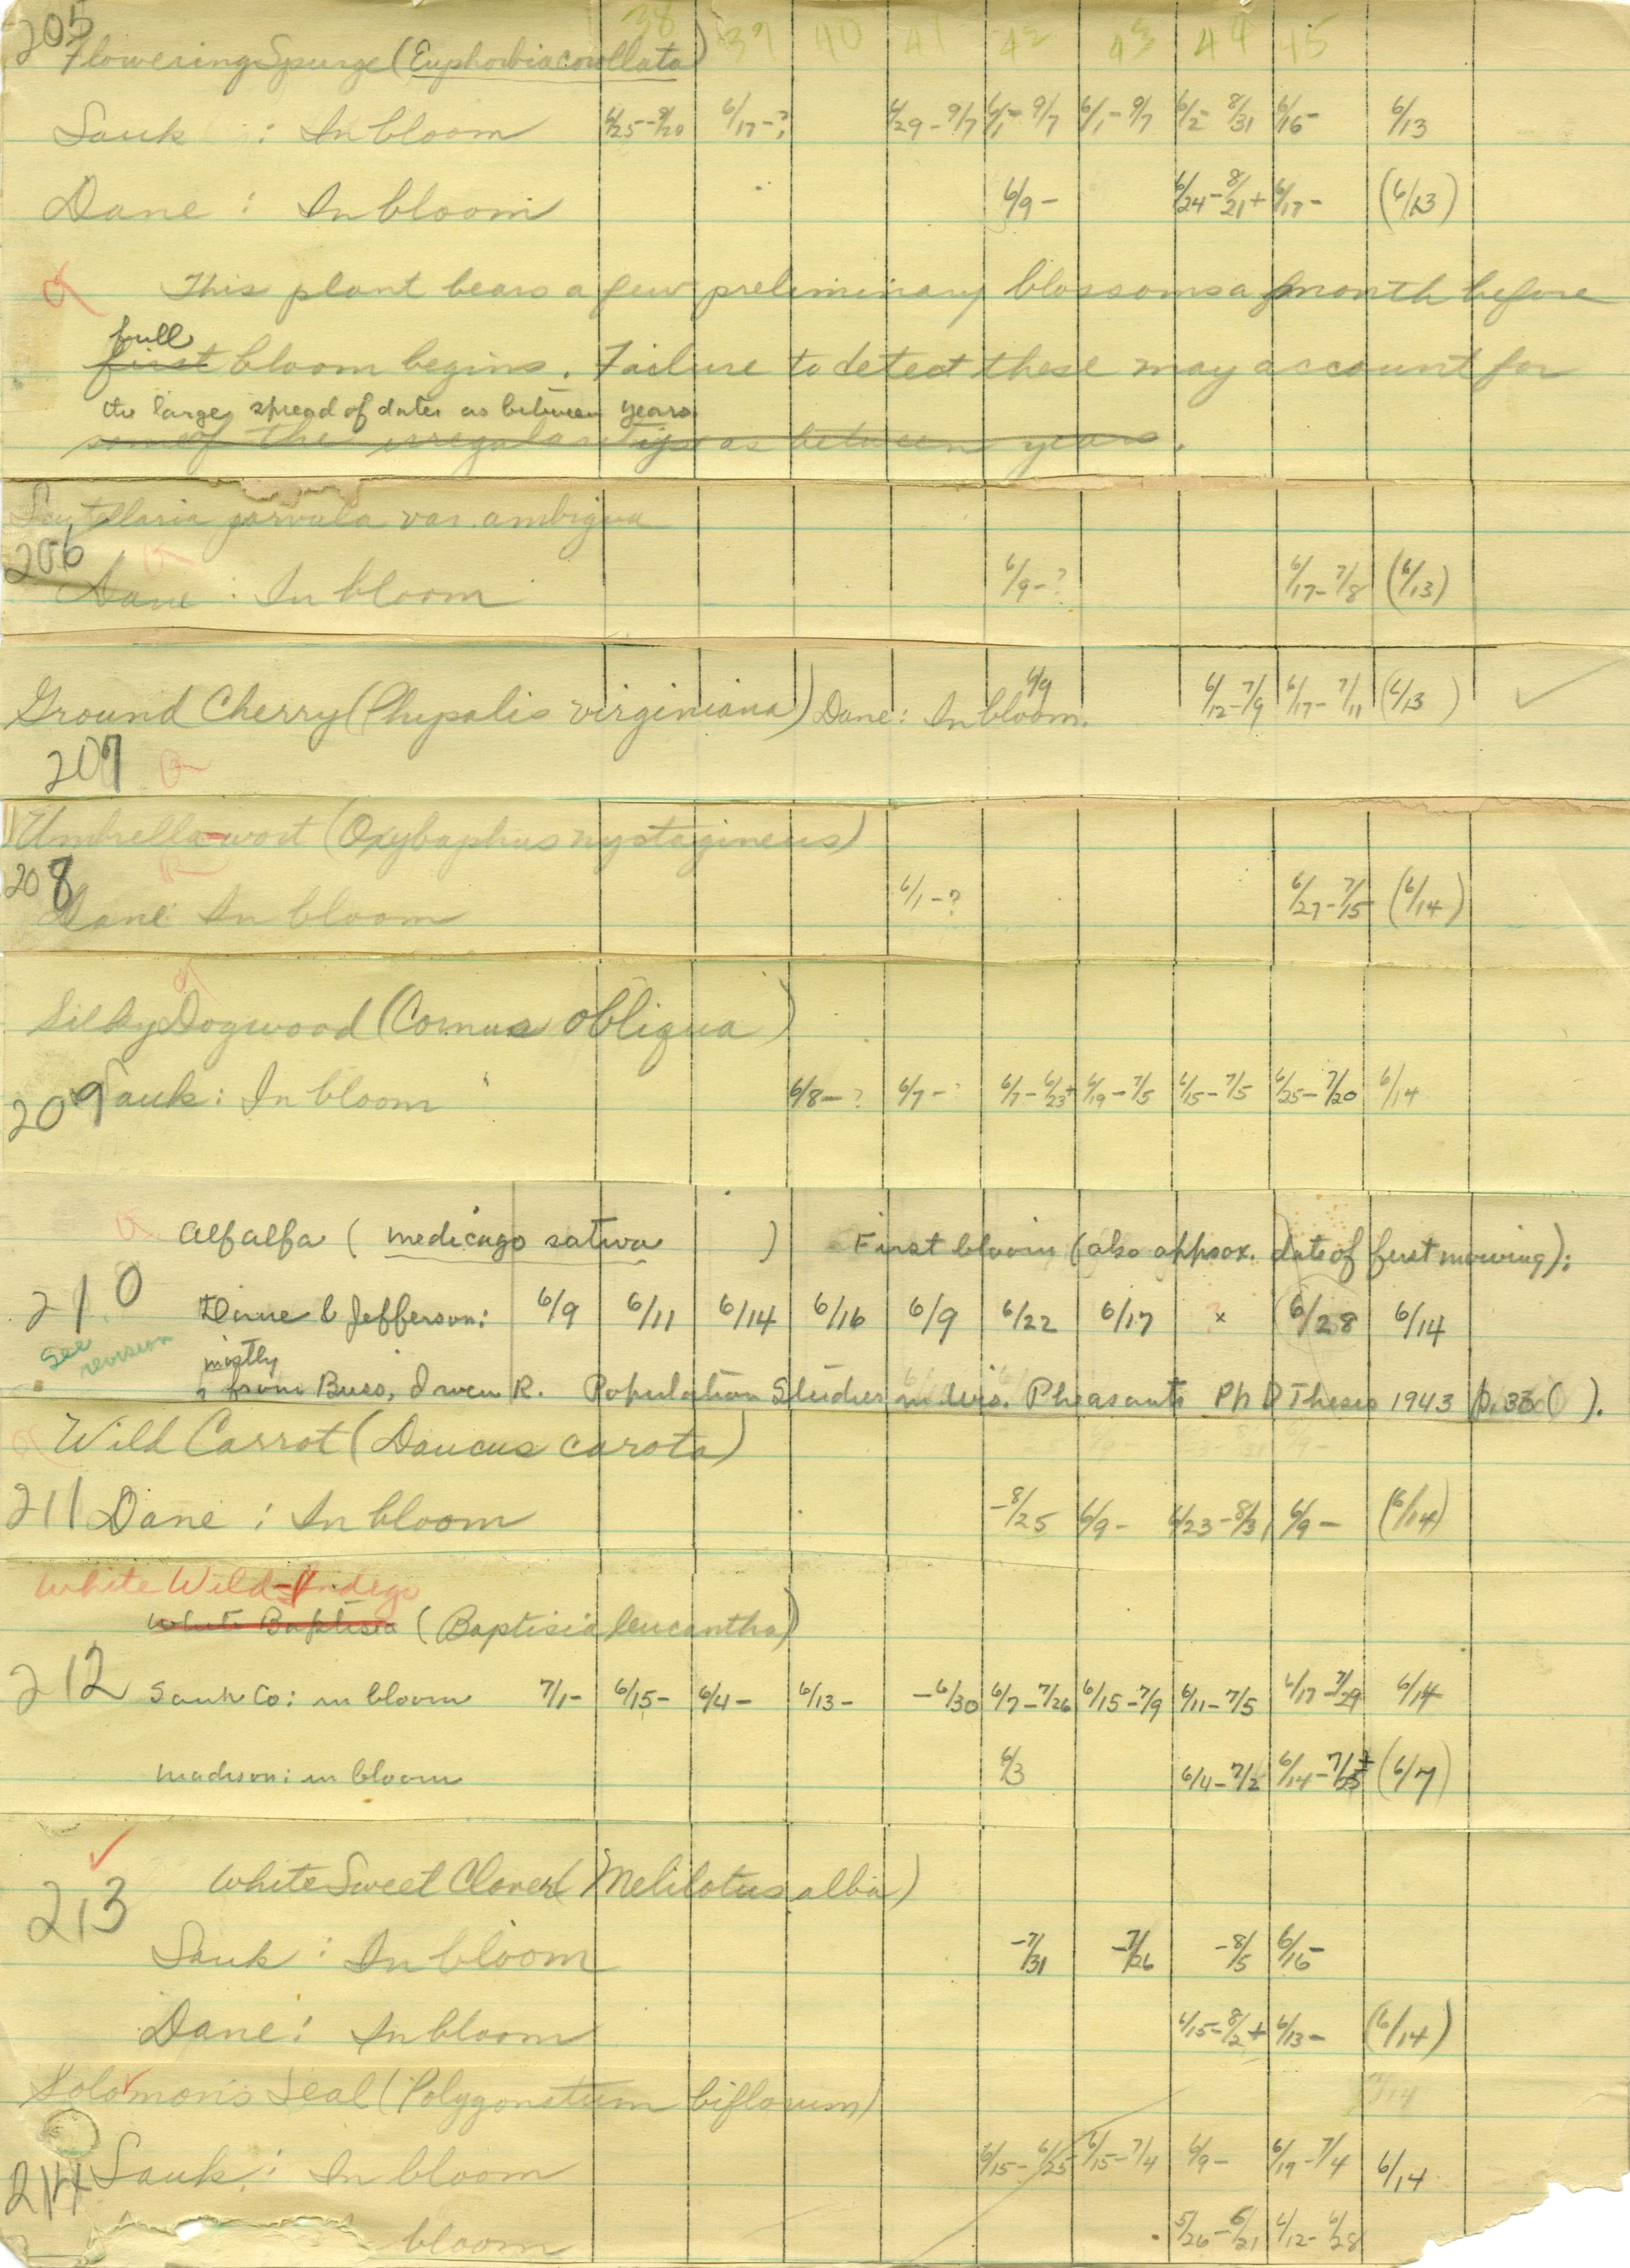 205 38 39 40 41 42 43 44 45
Flowering Spurge (Euphorbia corollata)
Sauk : In bloom 6/25-8/20 6/17-? 6/29-9/7 6/1-9/7 6/1-9/7 6/2-8/31 6/16- 6/13
Dane : In bloom 6/9- 6/24-8/21+ 6/17- (6/13)
This plant bears a few preliminary blossoms a month before
full
first bloom begins. Failure to detect these may account for
the large spread of dates as between years.
some of the irregularities as between years.
Scutellaria parvula var. ambigua
206
Dane : In bloom 6/9-? 6/17-7/8 (6/13)
Ground Cherry (Physalis virginiana) Dane: In bloom. 6/9 6/12-7/9 6/17-7/11 (6/13)
207
Umbrella-wort (Oxybaphus nyctagineus)
208
Dane: In bloom 6/1-? 6/27-7/15 (6/14)
Silky Dogwood (Cornus obliqua)
209 Sauk: In bloom 6/8-? 6/7-? 6/7-6/23+ 6/19-7/5 6/15-7/5 6/25-7/20 6/14
Alfalfa (medicago sativa) First bloom (also approx. date of first mowing):
210 Dane & Jefferson: 6/9 6/11 6/14 6/16 6/9 6/22 6/17 x 6/28 6/14
See revision
mostly
from Buss, Irven R. Population Studies in Wis. Pheasants Ph D Thesis 1943 p. 33 ( ).
Wild Carrot (Daucus carota)
211 Dane : In bloom -8/25 6/9- 6/23-8/31 6/9- (6/14)
White Wild-Indigo
White Baptisia (Baptisia leucantha)
212 Sauk Co: in bloom 7/1- 6/15- 6/4- 6/13- -6/30 6/7-7/26 6/15-7/9 6/11-7/5 6/17-7/29 6/14
Madison: in bloom 6/3 6/4-7/2 6/14-7/25+ (6/7)
White Sweet Clover (Melilotus alba)
213
Sauk : In bloom -7/31 -7/26 -8/5 6/16-
Dane: In bloom 6/15-8/2+ 6/13- (6/14)
Solomon's Seal (Polygonatum biflorum)
214 Sauk: In bloom 6/15-6/25 6/15-7/4 6/9- 6/19-7/4 6/14
bloom 5/26-6/21 6/12-6/28